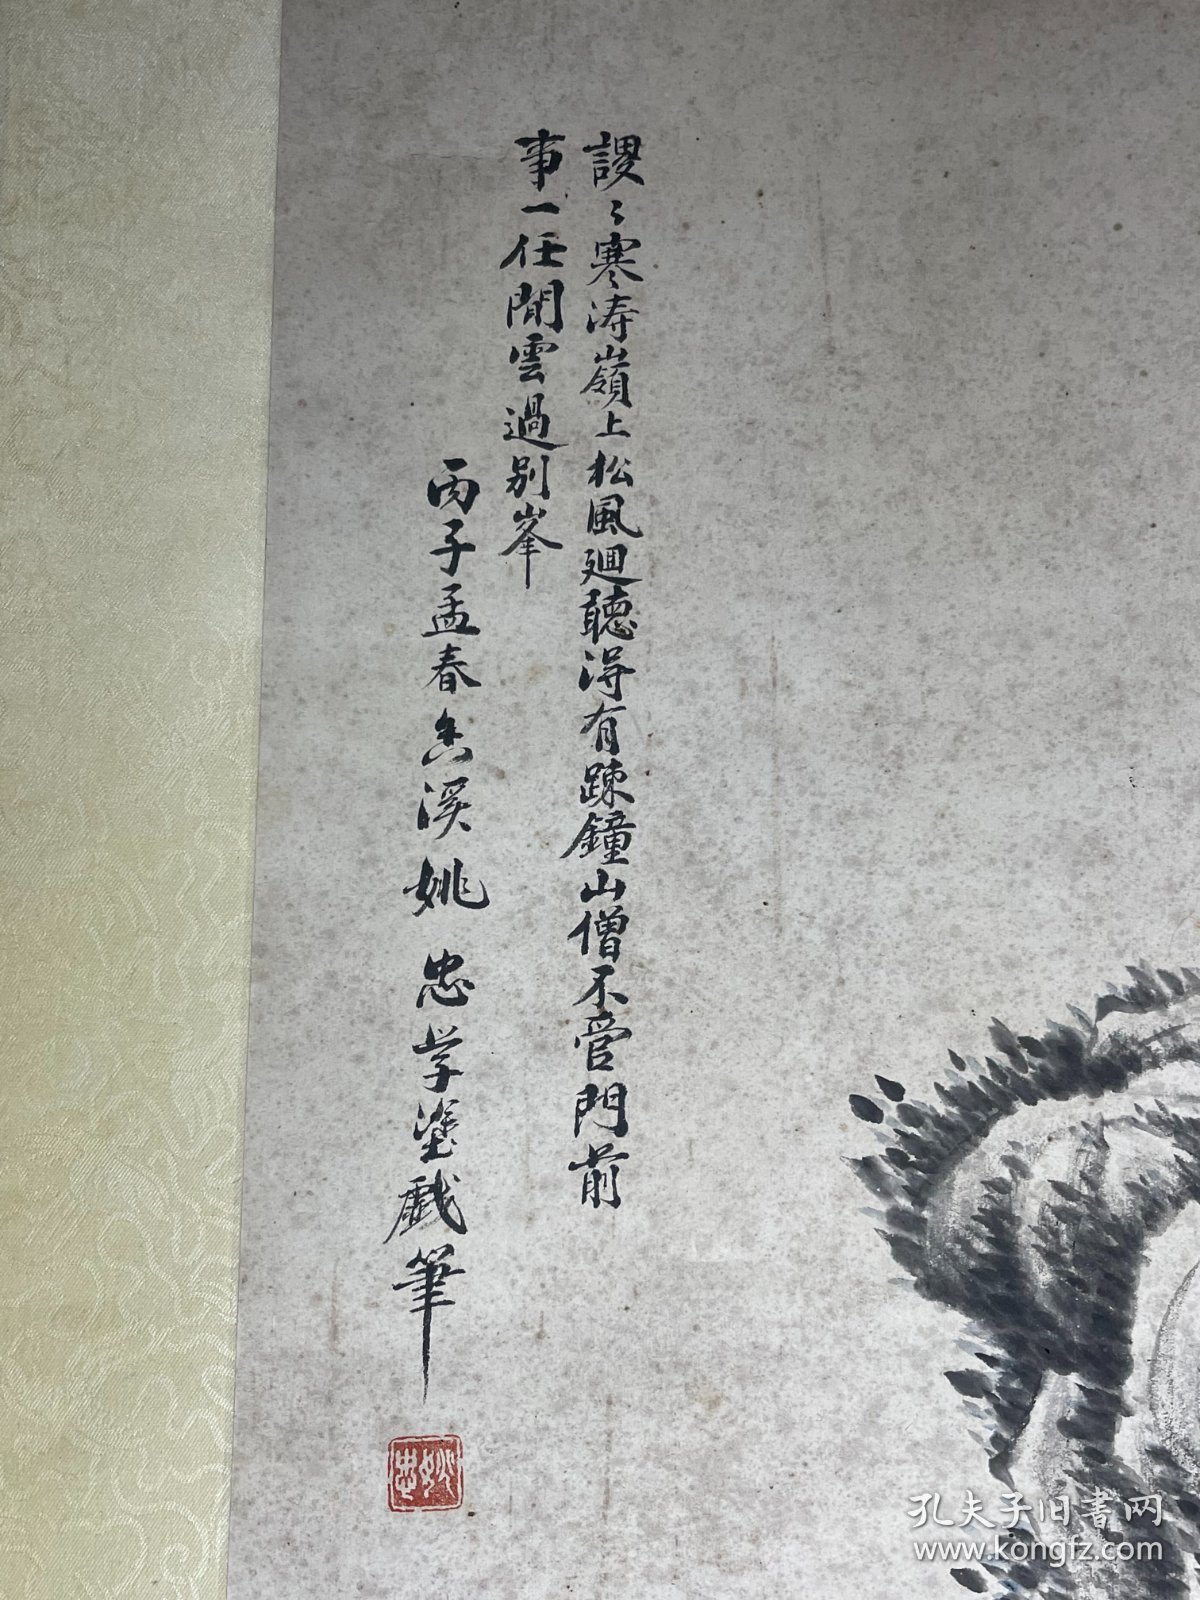 謖〻寒涛嶺上松風廻聽得有踈鐘山僧不管門前
事一任閒雲過別峯
丙子孟春香溪姚忠学塗戲筆
姚忠
孔夫子旧書网
www.kongfz.com